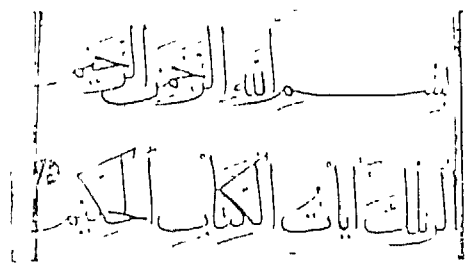 بِسْمِ اللَّهِ الرَّحْمَنِ الرَّحِيمِ
الر تِلْكَ آيَاتُ الْكِتَابِ الْحَكِيمِ